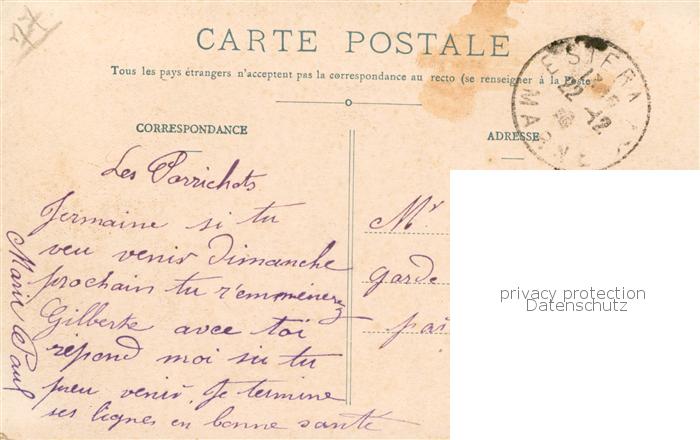 CARTE POSTALE
Tous les pays étrangers n'acceptent pas la correspondance au recto (se renseigner à la Poste
CORRESPONDANCE
ADRESSE
Les Parrichets
Jermaine si tu
veu venir Dimanche
prochain tu r'emménerez
Gilberte avec toi
répond moi si tu
peu venir. Je termine
ses lignes en bonne santé
Marie Paul
Mr
garde
par
22 -12
MARNE
privacy protection
Datenschutz